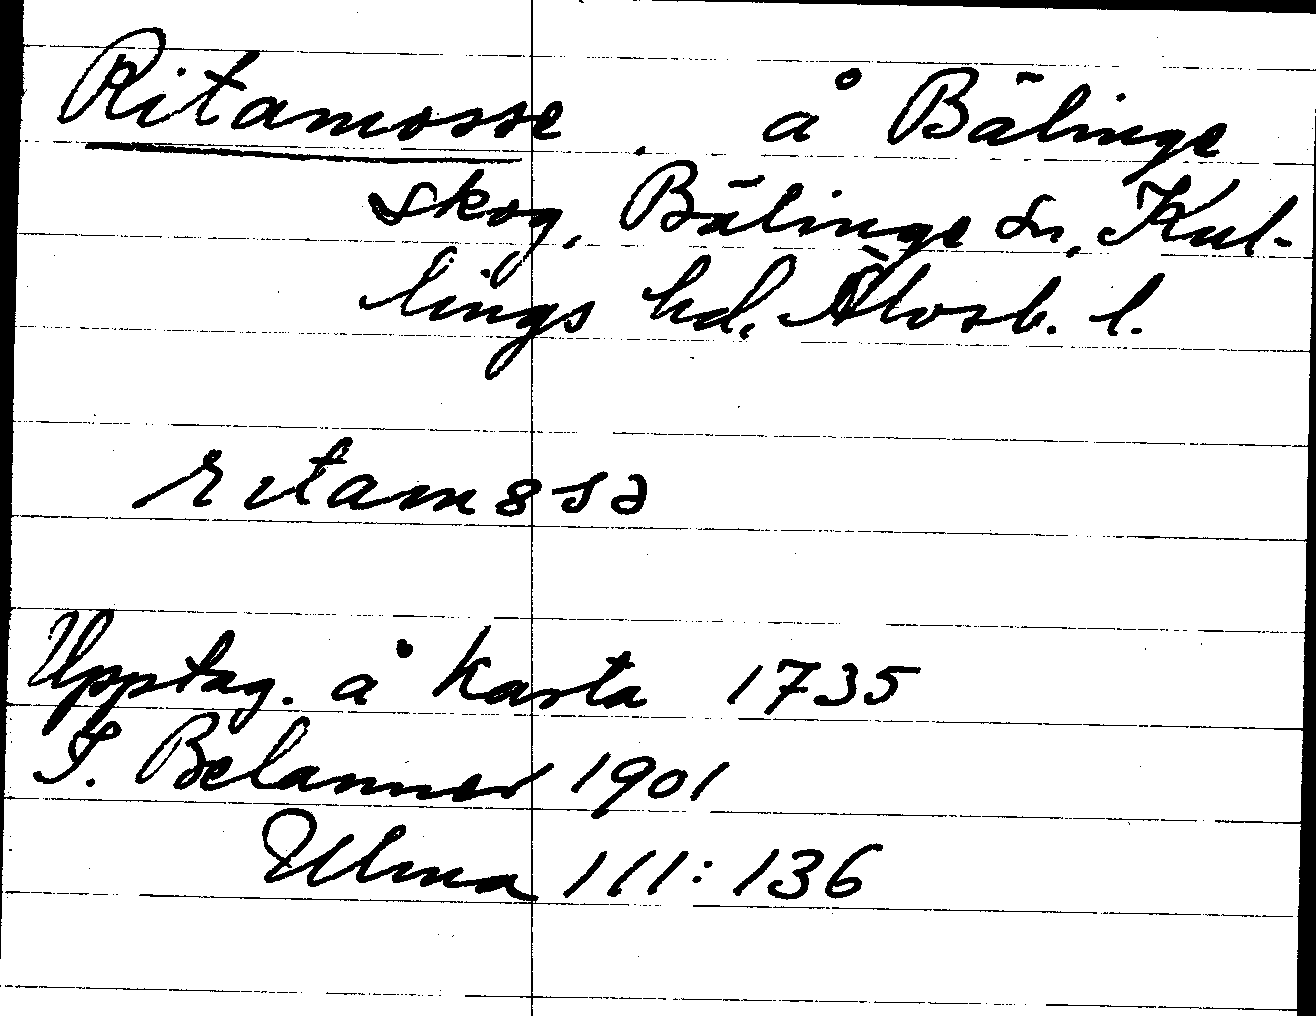 Ritamosse. å Bälinge
skog, Bälinge sn, Kul-
lings hd. Älvsb. l.
ritam8sə
Upptag. å karta 1735
I. Belanner 1901
Ulma 111:136